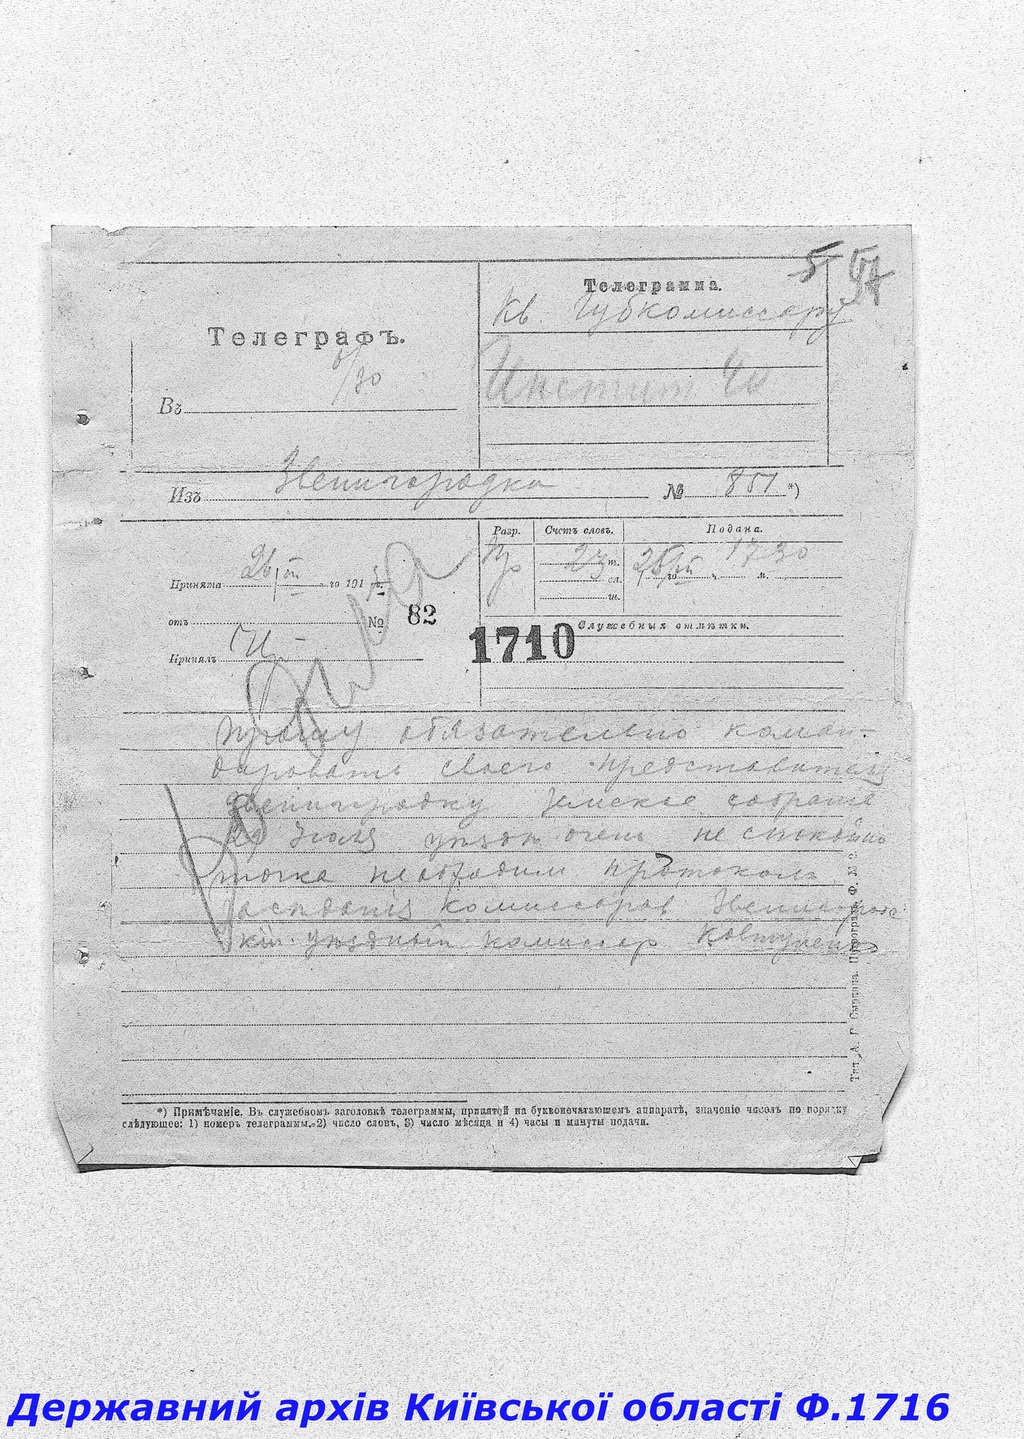 57
Телеграмма.
Кв. Губкомиссару
Телеграфъ.
Институт 40
Въ
Изъ Звенигородка № 851 *)
Разр. Счетъ словъ. Подана.
23 т. 26 го VII ч. 17 30 м.
сл.
ш.
Принята 26/VII го 191 г.
отъ № 82
Служебныя отмѣтки.
1710
Принялъ
Прошу обязательно коман-
дировать своего представителя
Звенигородку земское собрание
июля уезде очень не спокойно
точка необходим протокол
заседания комиссаров Звенигородс
кий уездный комиссар Ковтуненко
Тип. А. Г. Сыркина. Прографа. Ф. №
*) Примѣчаніе. Въ служебномъ заголовкѣ телеграммы, принятой на буквопечатающемъ аппаратѣ, значеніе чиселъ по порядку
слѣдующее: 1) номеръ телеграммы, 2) число словъ, 3) число мѣсяца и 4) часы и минуты подачи.
Державний архів Київської області Ф.1716